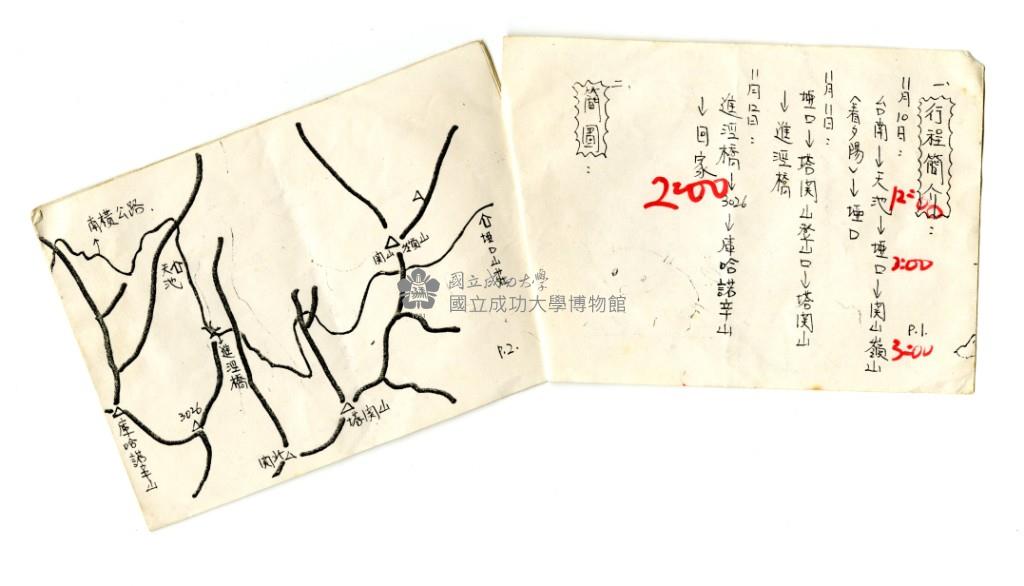 一、行程簡介：
11月10日：
台南→天池→埡口→関山嶺山
12:00
2:00
3:00
(看夕陽)→埡口
11月11日：
埡口→塔関山登山口→塔関山
→進涇橋
11月12日：
進涇橋→3026→庫哈諾辛山
→回家
2:00
二、
簡圖：
P.1.
南橫公路
天池
進涇橋
3026
庫哈諾辛山
関山嶺山
埡口山莊
塔関山
P.2.
國立成功大學
國立成功大學博物館